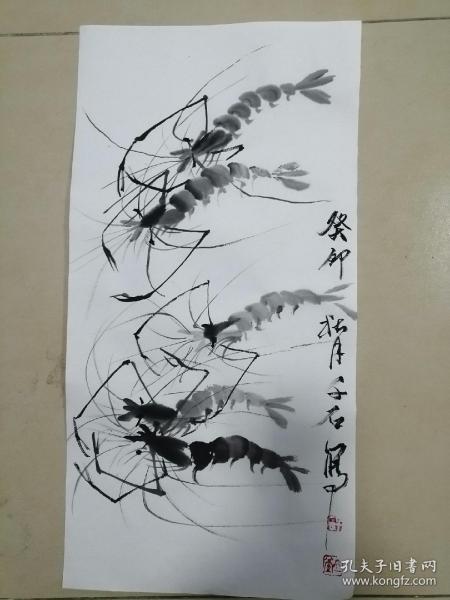 癸卯 秋月 千石 写
孔夫子旧书网
www.kongfz.com